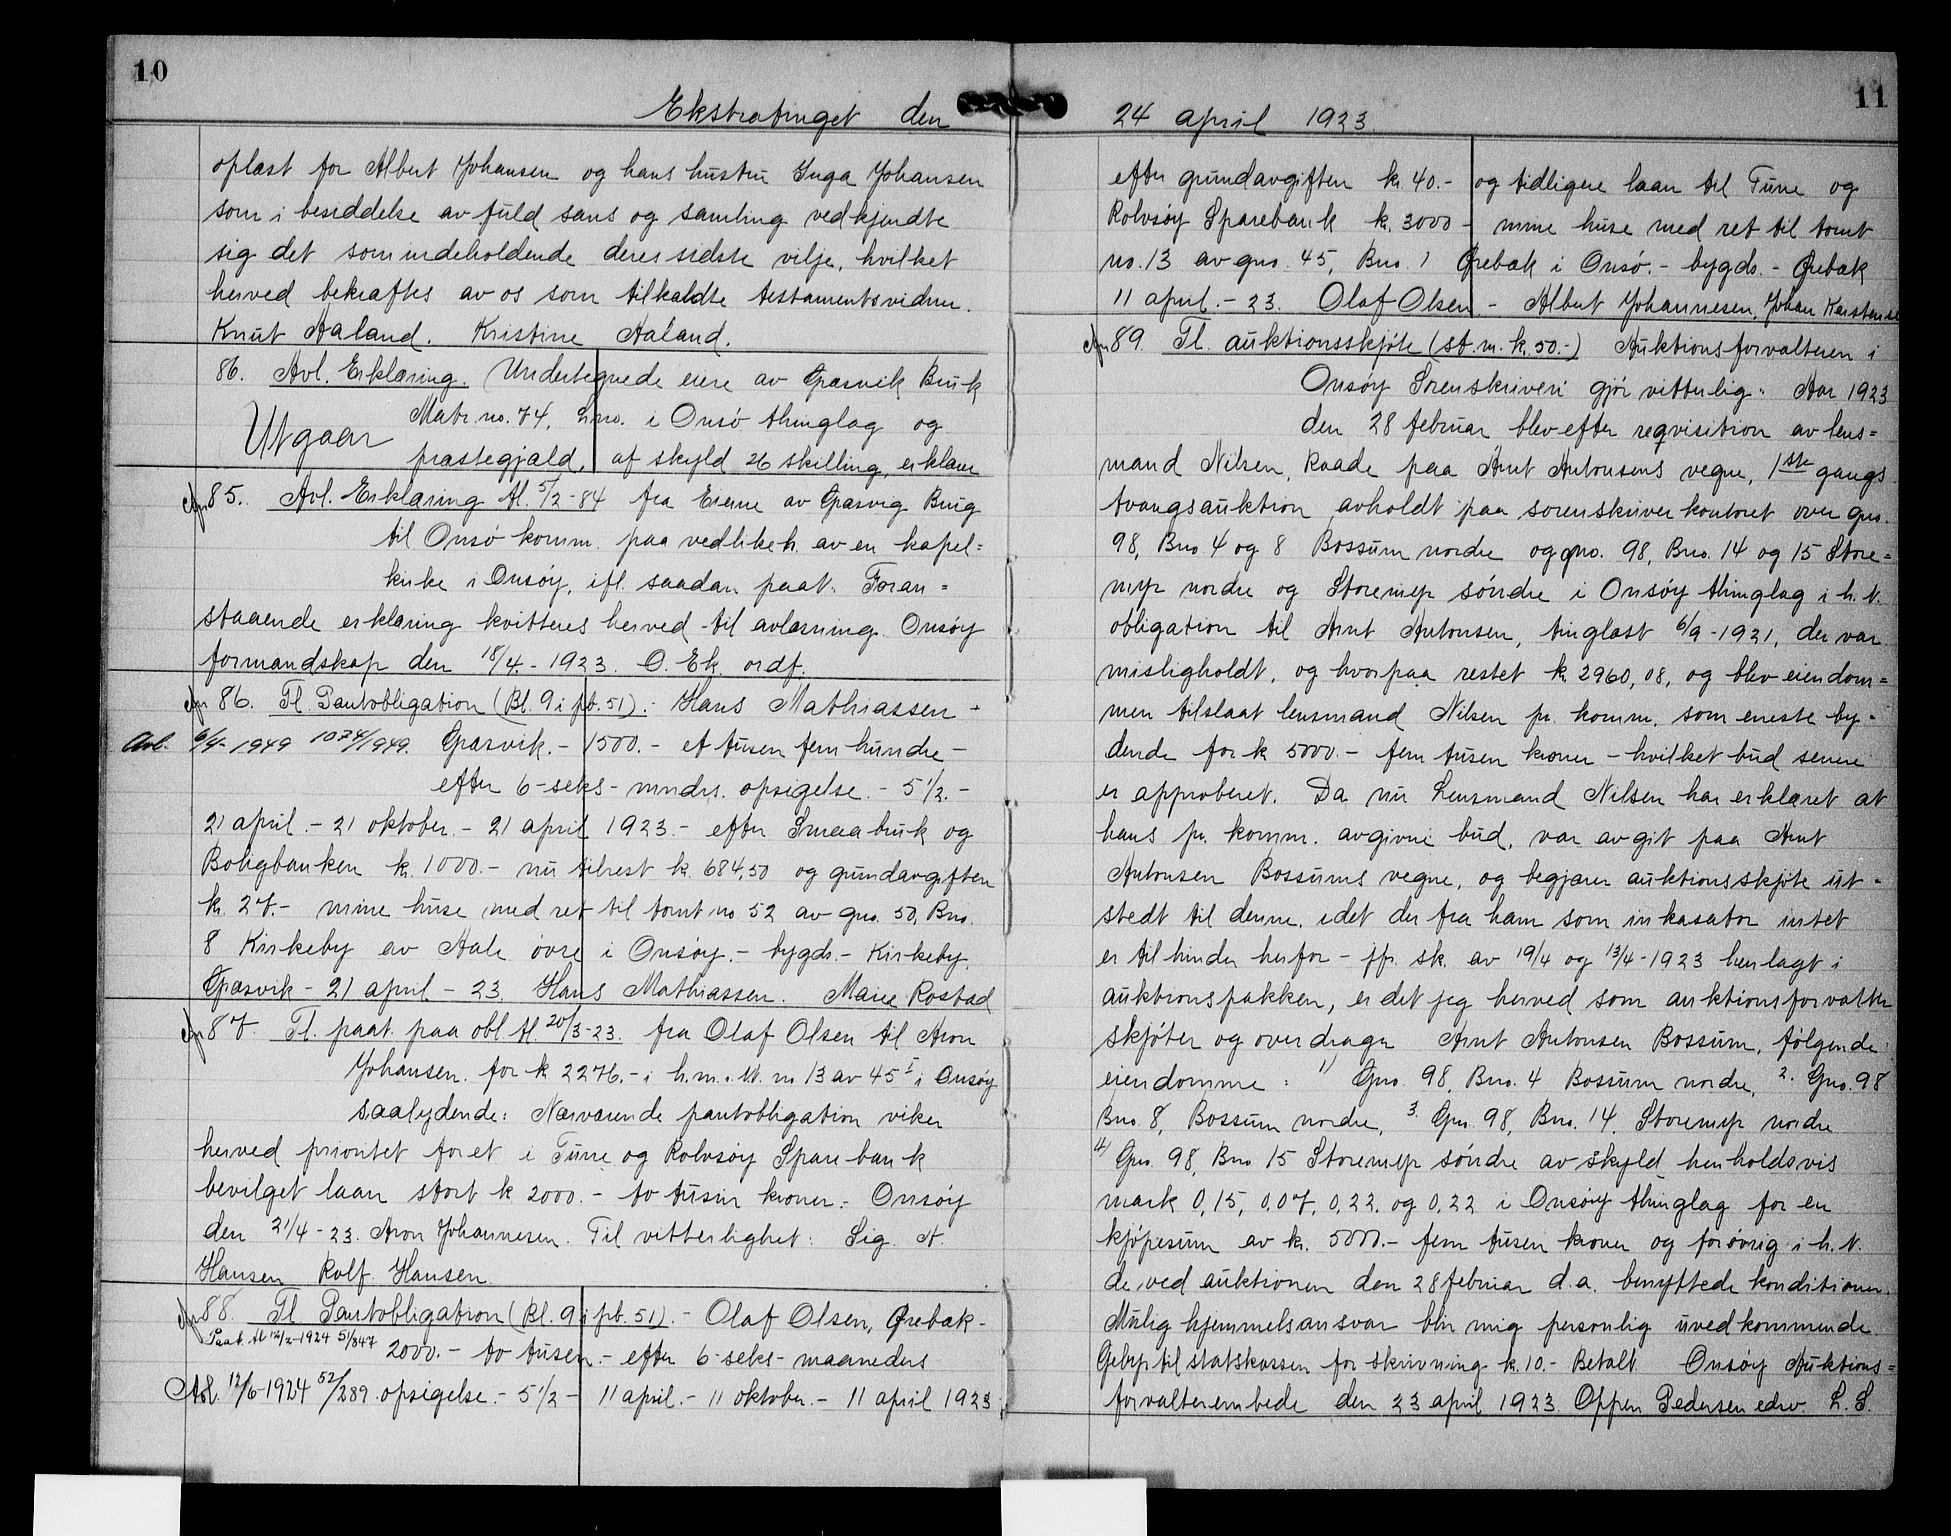 10
Ekstratinget den
oplæst for Albert Johansen og hans hustru Inga Johansen
som i besiddelse av fuld sans og samling vedkjendte
sig det som indeholdende deres sidste vilje, hvilket
herved bekræftes av os som tilkaldte testamentsvidner.
Knut Aaland. Kristine Aaland.
86. Avl. Erklæring. Undertegnede eiere av Græsvik Bruk
Matr. no. 74, Lno. i Onsø thinglag og
Utgaar præstegjæld, af skyld 26 skilling, erklære
85. Avl. Erklæring tl. 5/2-84 fra Eierne av Græsvig Brug
til Onsø komm. paa vedlikeh. av en kapel=
kirke i Onsøy, ifl. saadan paat. Foran=
staaende erklæring kvitteres herved til avlæsning. Onsøy
formandskap den 18/4-1923. O. Ek. ordf.
86. Tl. Pantobligation (Bl. 9 i pb. 51).- Hans Mathiassen -
Avl. 6/4-1949 1074/1949. Græsvik.- 1500.- et tusen fem hundre-
efter 6-seks- mndrs. opsigelse.- 5 1/2.-
21 april.- 21 oktober.- 21 april 1923.- efter Smaabruk og
Boligbanken k. 1000.- nu tilrest k. 684,50 og grundavgiften
k. 27.- mine huse med ret til tomt no 52 av gno. 50, Bno.
8 Kirkeby av Aale øvre i Onsøy.- bygds.- Kirkeby.
Græsvik - 21 april - 23. Hans Mathiassen. Marie Rostad
87. Tl. paat. paa obl. tl. 20/3-23. fra Olaf Olsen til Aron
Johansen. for k 2276.- i h.m. tl. no 13 av 45 I i Onsøy
saalydende: Nærværende pantobligation viker
herved prioritet for et i Tune og Rolvsøy Sparebank
bevilget laan stort k 2000.- to tusin kroner: Onsøy
den 21/4-23. Aron Johannesen. Til vitterlighet: Sig. A.
Hansen Rolf Hansen.
88. Tl Pantobligation (Bl. 9 i pb. 51).- Olaf Olsen, Ørebæk-
Paat. tl 12/2-1924 51/847 2000.- to tusen.- efter 6-seks- maaneders
Avl. 12/6-1924 52/289. opsigelse.- 5 1/2- 11 april.- 11 oktober.- 11 april 1923
11
24 april 1923.
efter grundavgiften k. 40.- og tidligere laan til Tune og
Rolvsøy Sparebank k. 3000 - mine huse med ret til tomt
no. 13 av gno. 45, Bno. 1 Ørebæk i Onsø.- bygds.- Ørebæk
11 april.- 23. Olaf Olsen - Albert Johannesen, Johan Karstensen
89. Tl. auktionsskjøte (st. m. k. 50.-) Auktionsforvalteren i
Onsøy Sorenskriveri gjør vitterlig: Aar 1923
den 28 februar blev efter reqvisition av lens=
mand Nilsen, Raade paa Arnt Antonsens vegne, 1ste gangs
tvangsauktion avholdt paa sorenskriverkontoret over gno.
98, Bno. 4 og 8 Bossum nordre og gno. 98, Bno. 14 og 15 Store=
myr nordre og Storemyr søndre i Onsøy thinglag i h. t.
obligation til Arnt Antonsen, tinglæst 6/9-1921, der var
misligholdt, og hvorpaa restet k. 2960,08, og blev eiendom=
men tilslaat lensmand Nilsen pr. komm. som eneste by=
dende for k 5000.- fem tusen kroner - hvilket bud senere
er approberet. Da nu Lensmand Nilsen har erklæret at
hans pr. komm. avgivne bud, var avgit paa Arnt
Antonsen Bossums vegne, og begjærer auktionsskjøte ut=
stedt til denne, idet der fra ham som inkasator intet
er til hinder herfor - jfr. sk. av 19/4 og 13/4-1923 henlagt i
auktionspakken, er det jeg herved som auktionsforvalter
skjøter og overdrager Arnt Antonsen Bossum, følgende
eiendomme: 1) Gno. 98, Bno. 4 Bossum nordre, 2. Gno. 98
Bno 8, Bossum nordre, 3. Gno. 98, Bno. 14, Storemyr nordre
4) Gno. 98, Bno 15 Storemyr søndre av skyld henholdsvis
mark 0,15, 0,07, 0,22, og 0,22 i Onsøy thinglag for en
kjøpesum av k. 5000.- fem tusen kroner og forøvrig i h. t.
de ved auktionen den 28 februar d.a. benyttede konditioner.
Mulig hjemmelsansvar blir mig personlig uvedkommende.
Gebyr til statskassen for skrivning k. 10.- Betalt. Onsøy Auktions=
forvalterembede den 23 april 1923 Oppen Pedersen edsv. L. S.